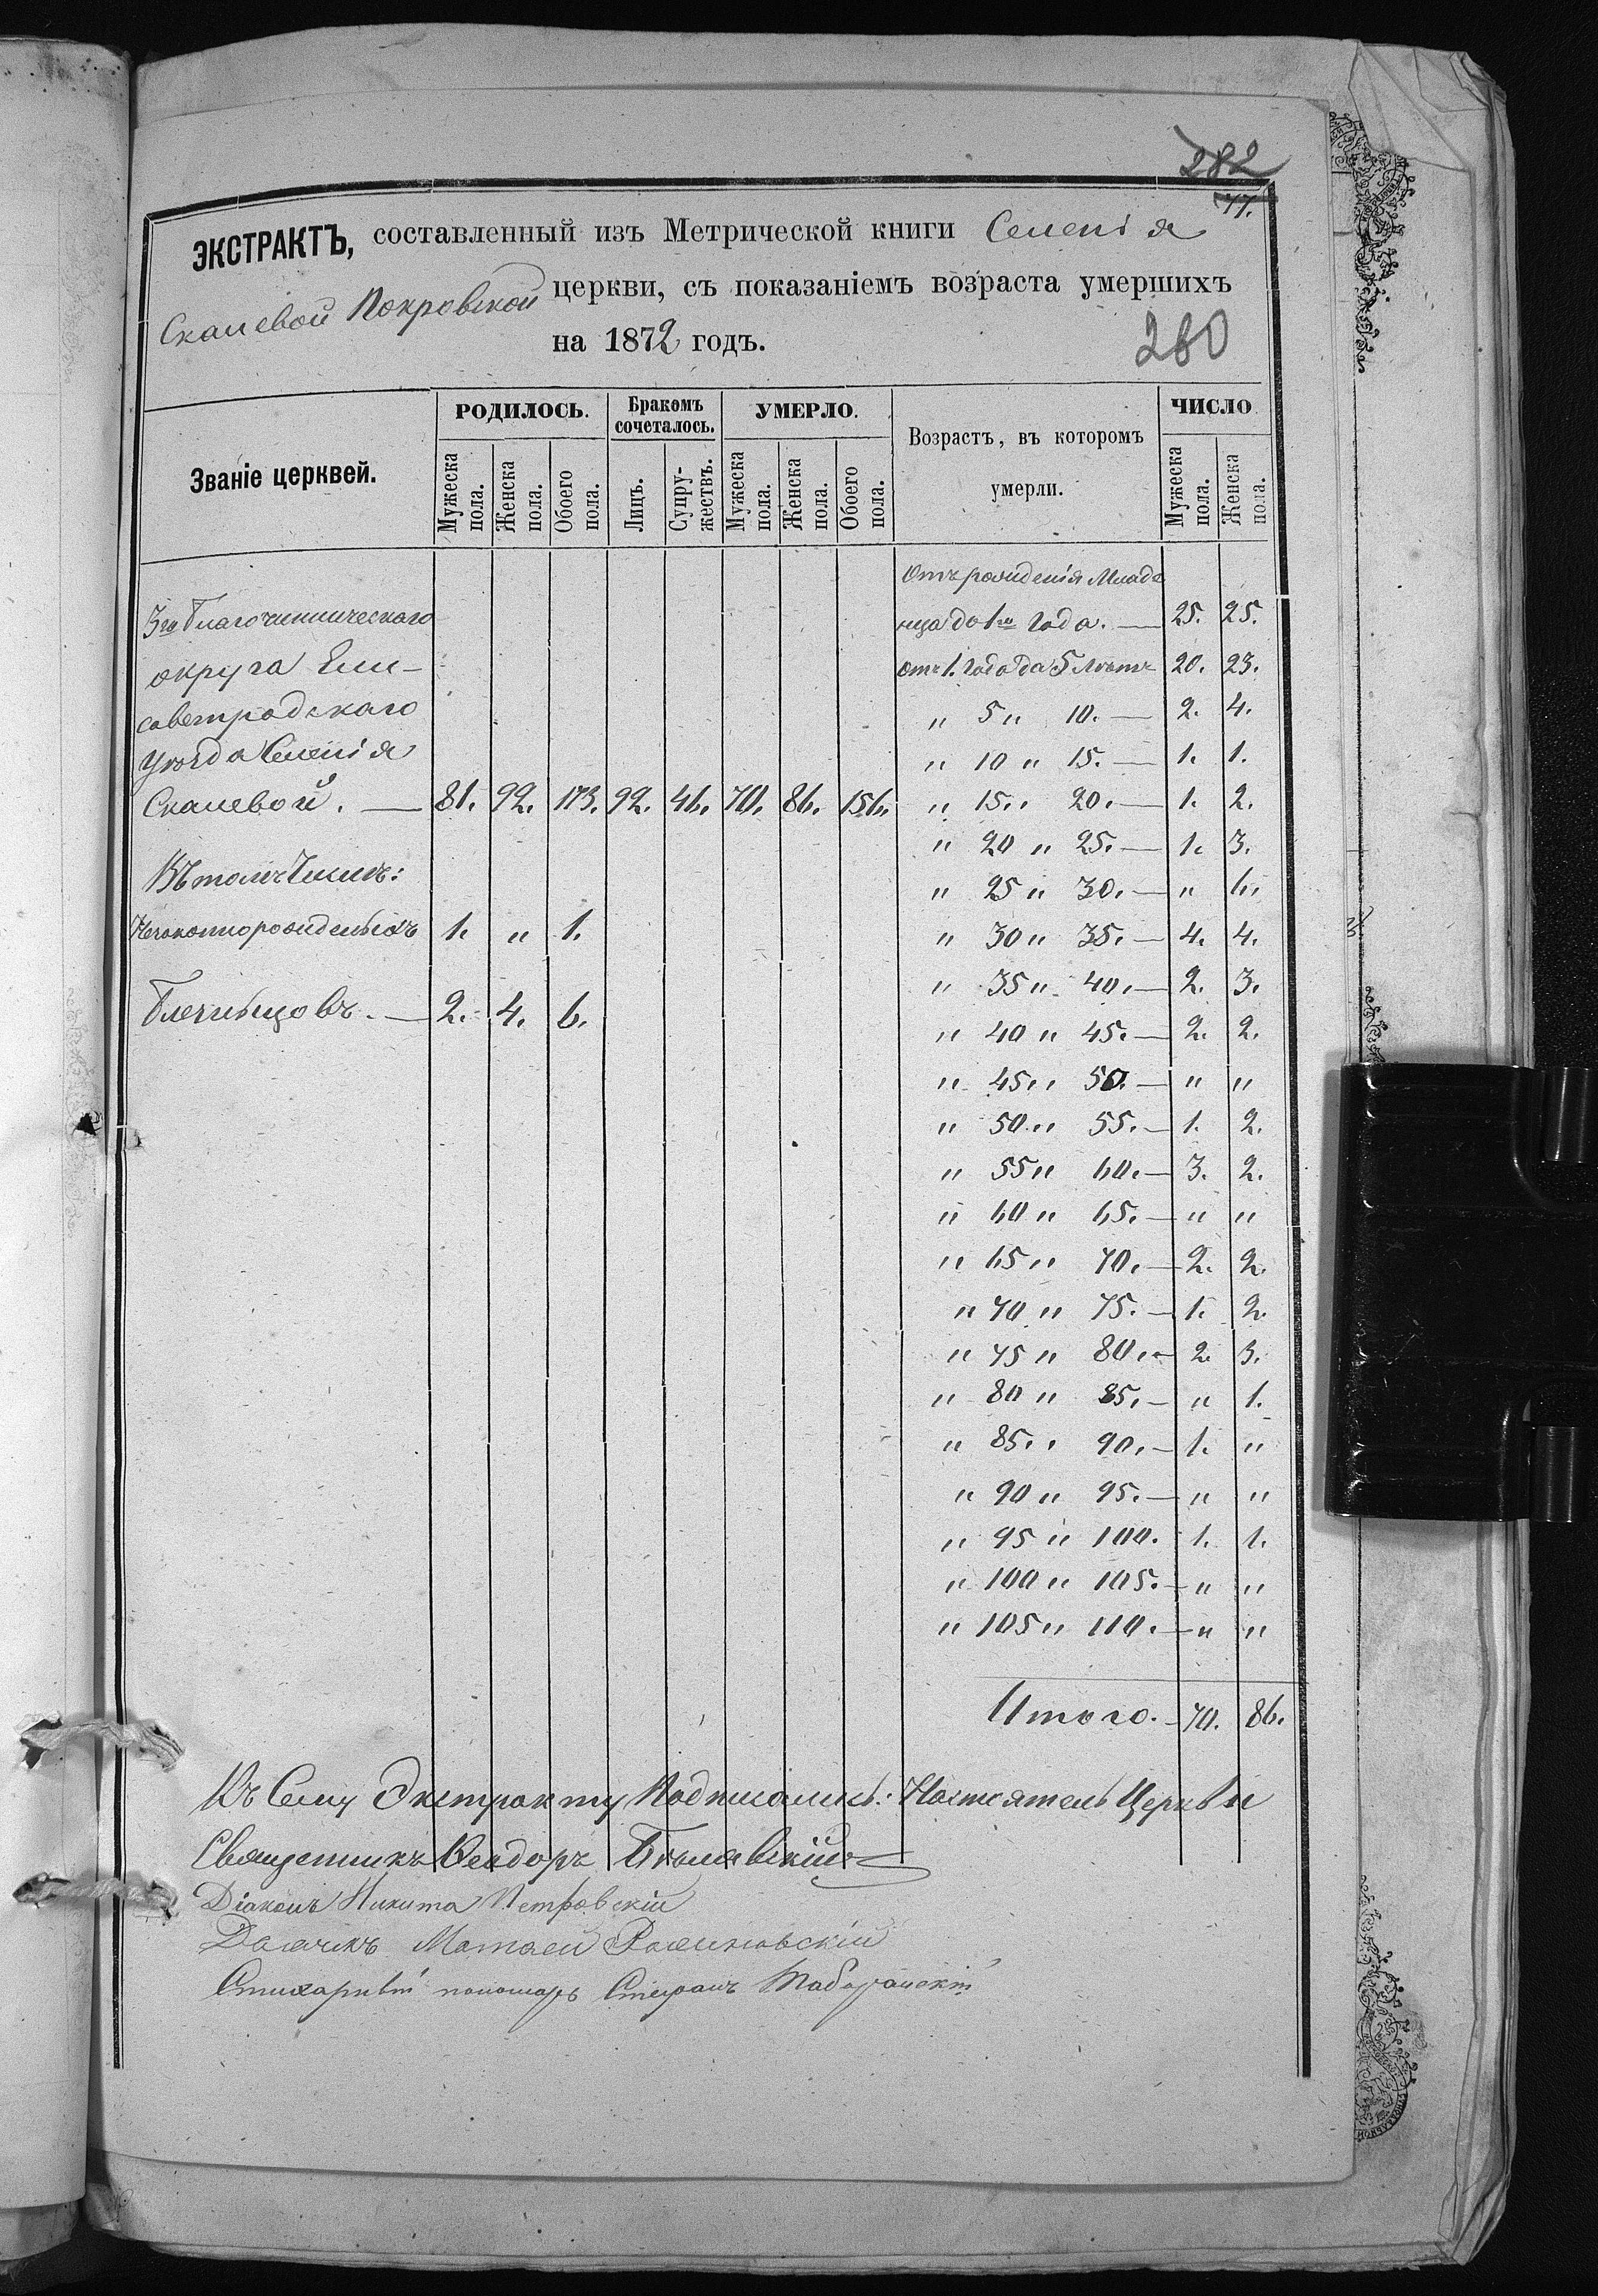 282
77.
ЭКСТРАКТЪ, составленный изъ Метрической книги Селенія
Скалевой Покровской церкви, съ показаніемъ возраста умершихъ
на 1872 годъ.
280
Званіе церквей. РОДИЛОСЬ. Бракомъ сочеталось. УМЕРЛО. Возрастъ, въ которомъ умерли. ЧИСЛО
Мужеска пола. Женска пола. Обоего пола. Лицъ. Супружествъ. Мужеска пола. Женска пола. Обоего пола. Мужеска пола. Женска пола.
Отъ рожденія Младе
3го Благочинническаго нца до 1го Года. — 25. 25.
округа Ели- отъ 1. Года до 5 Лѣтъ 20. 23.
саветградскаго " 5 " 10. — 2. 4.
уѣзда Селенія " 10 " 15. — 1. 1.
Скалевой. — 81. 92. 173. 92. 46. 70. 86. 156. " 15 " 20. — 1. 2.
" 20 " 25. — 1. 3.
Въ томъ Числѣ: " 25 " 30. — " 6.
Незаконнорожденныхъ 1. " 1. " 30 " 35. — 4. 4.
" 35 " 40. — 2. 3.
Близнецовъ. — 2. 4. 6. " 40 " 45. — 2. 2.
" 45 " 50. — " "
" 50 " 55. — 1. 2.
" 55 " 60. — 3. 2.
" 60 " 65. — " "
" 65 " 70. — 2. 2.
" 70 " 75. — 1. 2.
" 75 " 80. — 2. 3.
" 80 " 85. — " 1.
" 85 " 90. — 1. "
" 90 " 95. — " "
" 95 " 100. 1. 1.
" 100 " 105. — " "
" 105 " 110. — " "
Итого. — 70. 86.
Къ Сему Экстракту Подписались: Настоятель Церкви
Священникъ Ѳеодоръ Бѣлявскій
Діаконъ Никита Петровскій
Дьячикъ Матѳей
Стихарный пономарь Стефанъ